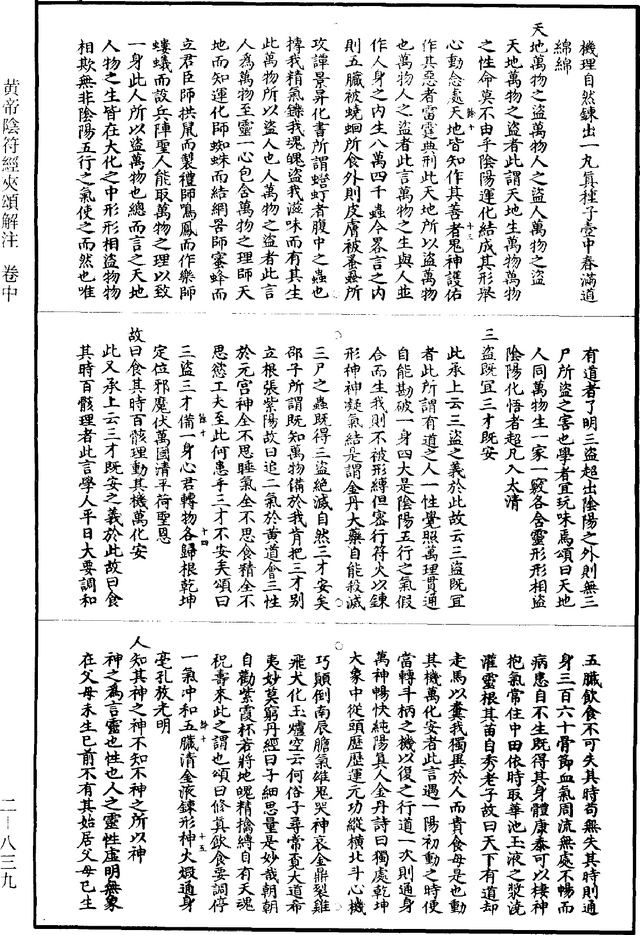 機理自然鍊出一九真種子壺中春滿道
綿綿
天地萬物之盜萬物人之盜人萬物之盜
天地萬物之盜者此謂天地生萬物萬物
之性命莫不由乎陰陽運化結成其形舉
心動念處天地皆知作其善者鬼神護佑
作其惡者雷霆典刑此天地所以盜萬物
也萬物人之盜者此言萬物之生與人並
作人身之內生八萬四千蟲今畧言之內
則五臟被蟯蛔所食外則皮膚被蚤蝨所
攻譚景昇化書所謂蟯蚘者腹中之蟲也
摶我精氣鑠我魂魄盜我滋味而有其生
此萬物所以盜人也人萬物之盜者此言
人為萬物至靈一心包含萬物之理師天
地而知運化師蜘蛛而結網罟師蜜蜂而
立君臣師拱鼠而製禮師鳴鳳而作樂師
螻蟻而設兵陣聖人能取萬物之理以致
一身此人所以盜萬物也總而言之天地
人物之生皆在大化之中形形相盜物物
相欺無非陰陽五行之氣使之而然也唯
有道者了明三盜超出陰陽之外則無三
尸所盜之害也學者宜玩味焉頌曰天地
人同萬物生一家一竅各含靈形形相盜
陰陽化悟者超凡入太清
三盜既宜三才既安
此承上云三盜之義於此故云三盜既宜
者此所謂有道之人一性覺照萬理貫通
自能勘破一身四大是陰陽五行之氣假
合而生我則不被形縛但密行符火以鍊
形神神凝氣結是謂金丹大藥自能殺滅
三尸之蟲既得三盜絶滅自然三才安矣
邵子所謂既知萬物備於我肯把三才別
立根張紫陽故曰追二氣於黃道會三性
於元宮神全不思睡氣全不思食精全不
思慾工夫至此何患乎三才不安矣頌曰
三盜三才備一身心君轉物各歸根乾坤
定位邪魔伏萬國清平荷聖恩
故曰食其時百骸理動其機萬化安
此又承上云三才既安之義於此故曰食
其時百骸理者此言學人平日大要調和
五臟飲食不可失其時苟無失其時則通
身三百六十骨節血氣周流無處不暢而
病患自不生既得其身體康泰可以棲神
抱氣常住中田依時取華池玉液之漿澆
灌靈根其苗自秀老子故曰天下有道却
走馬以糞我獨異於人而貴食母是也動
其機萬化安者此言遇一陽初動之時便
當轉斗柄之機以復之行道一次則通身
萬神暢快純陽真人金丹詩曰獨處乾坤
大象中從頭歷歷運元功縱橫北斗心機
巧顛倒南辰膽氣雄鬼哭神哀金鼎裂雞
飛犬化玉爐空云何俗子尋常覓大道希
夷妙莫窮丹經曰子細思量是妙哉朝朝
自勸紫霞杯若將地魄精擒縛自有天魂
祝壽來此之謂也頌曰修真飲食要調停
一氣沖和五臟清金液鍊形神火煅通身
毫孔放光明
人知其神之神不知不神之所以神
神之為言靈也性也人之靈性虛明無象
在父母未生已前不有其始居父母已生
餘十
十三
餘十
十四
餘十
十五
黄帝陰符經夾頌解注　卷中
二－八三九